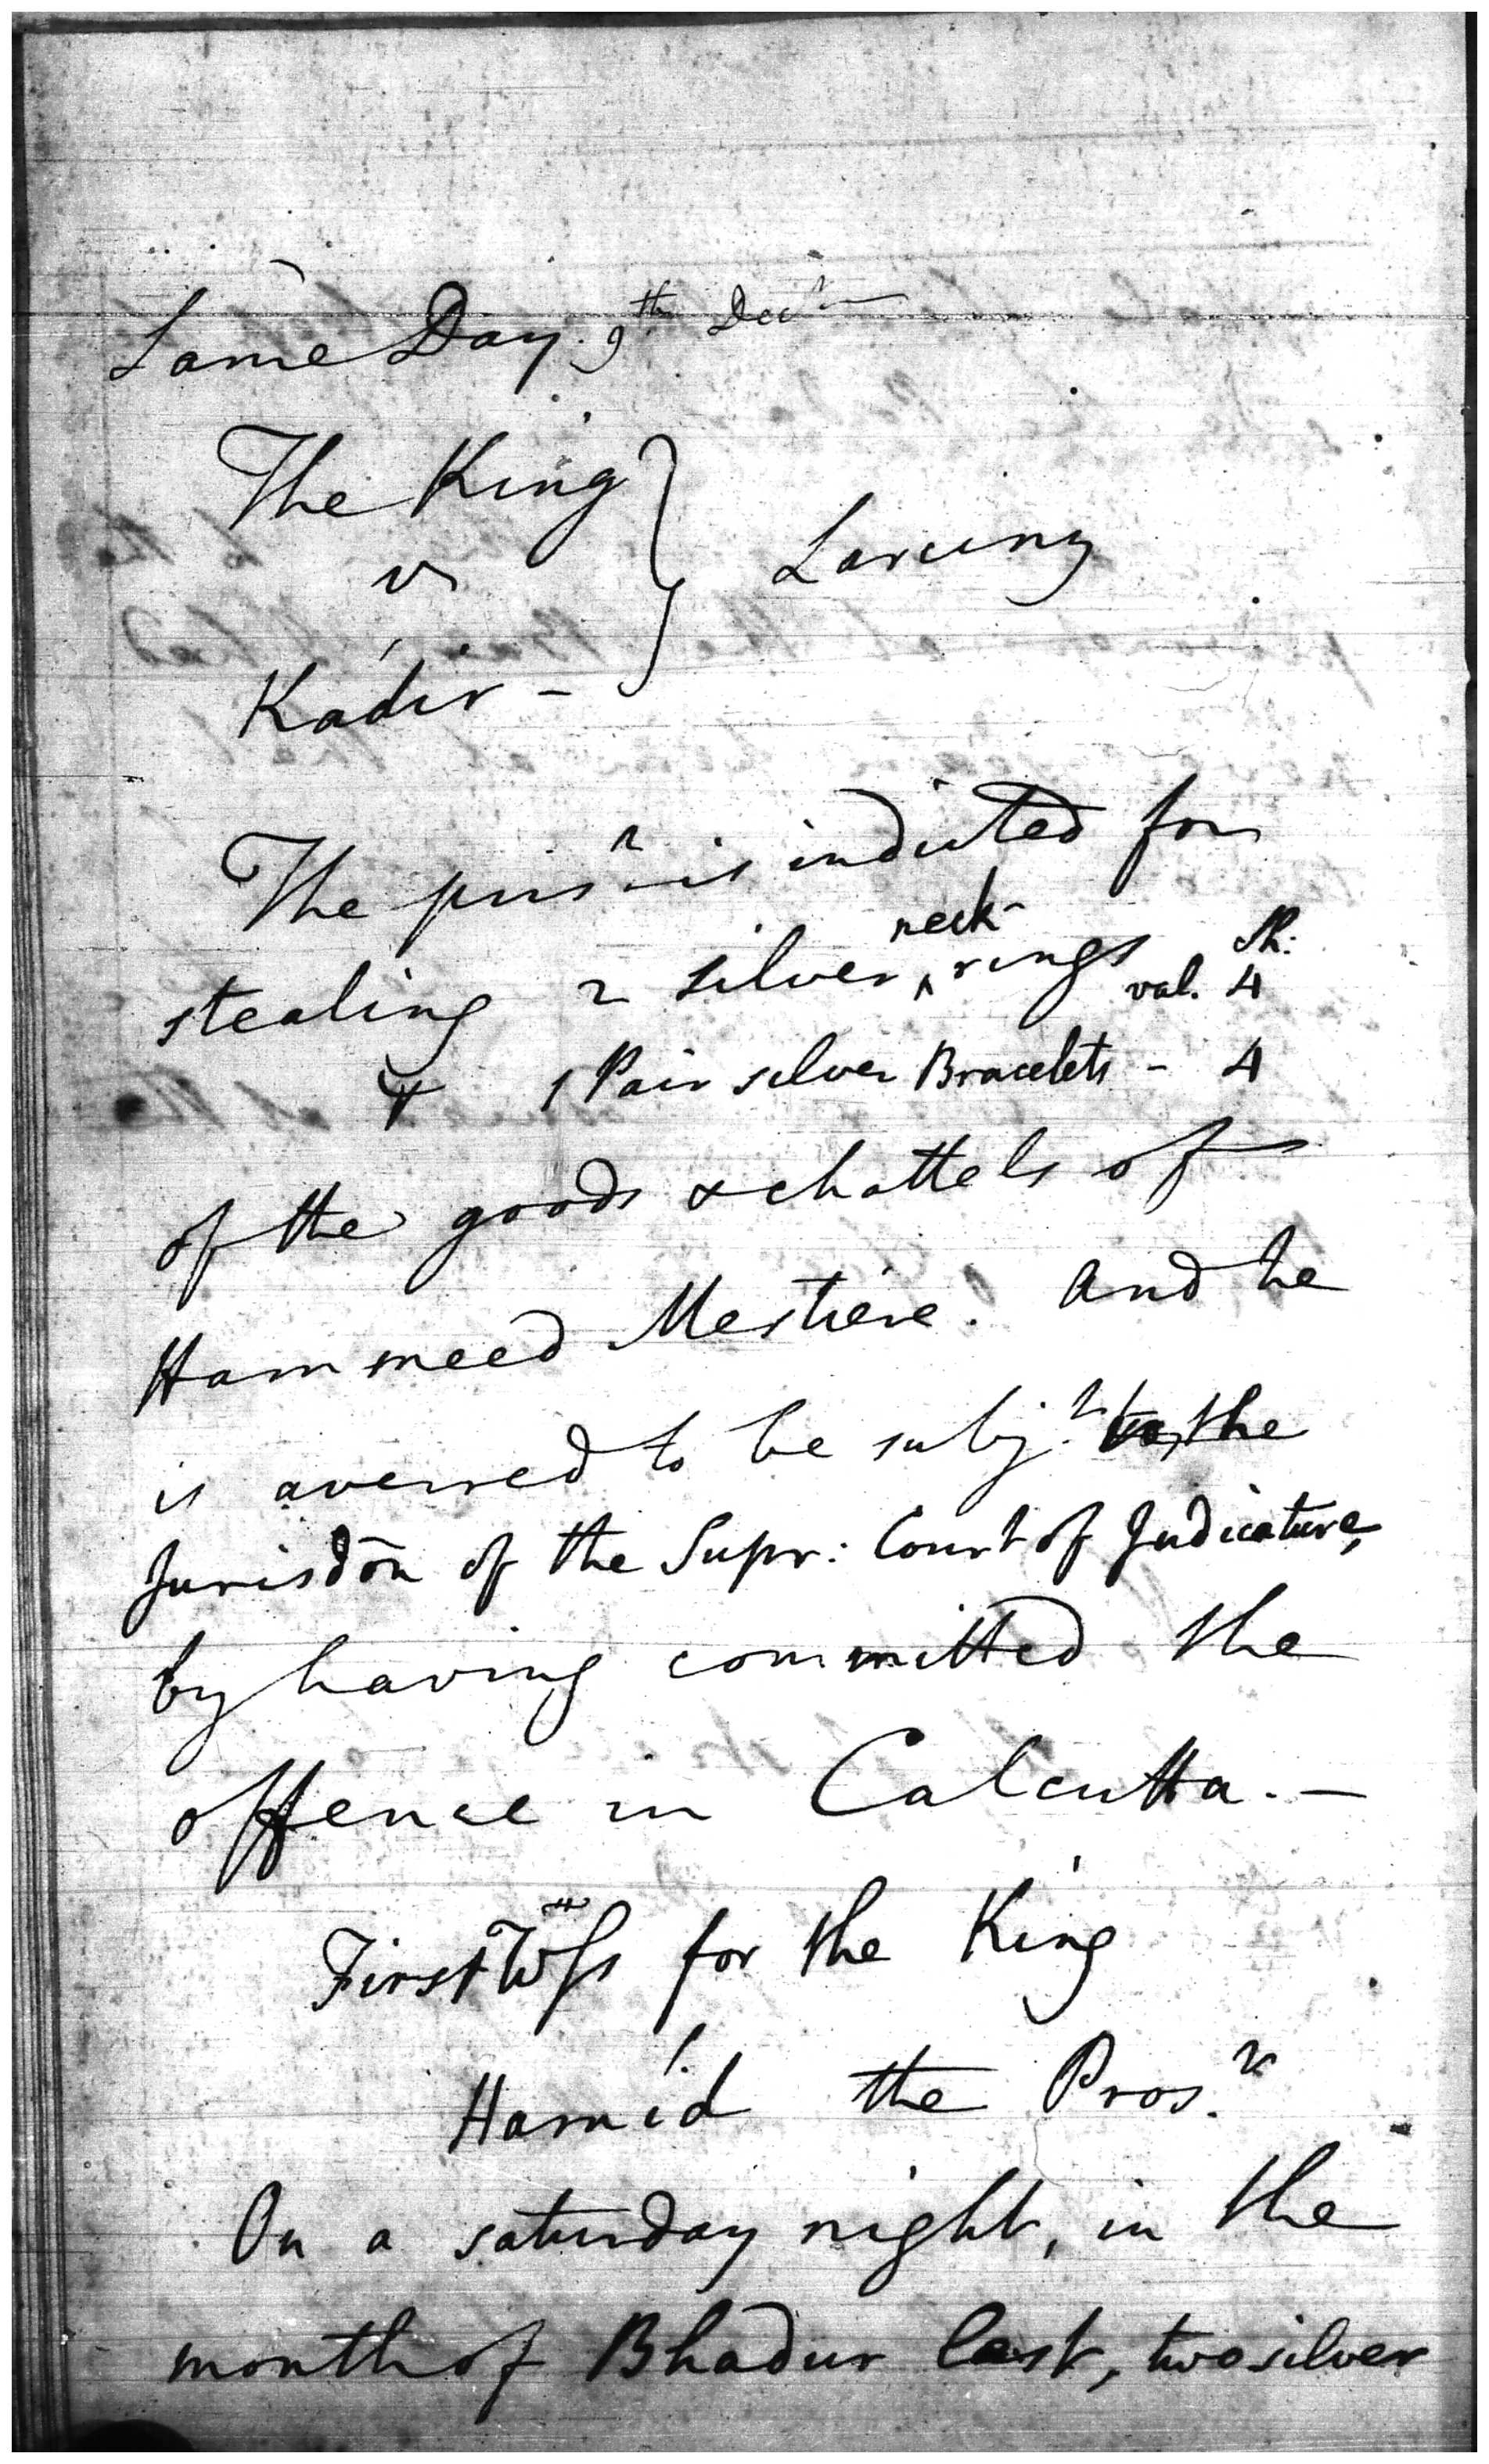 Same Day. 9th Decr
The King
vs
Kadir -
Larceny
The prisr is indicted for
stealing 2 silver neck- rings val. Sh: 4
& 1 Pair silver Bracelets - 4
of the goods & chattels of
Hammeed Mestiere. And he
is averred to be subjt to the
Jurisdōn of the Supr: Court of Judicature,
by having committed the
offence in Calcutta. -
First Wss for the King
Hamíd the Prosr.
On a saturday night, in the
month of Bhadur last, two silver